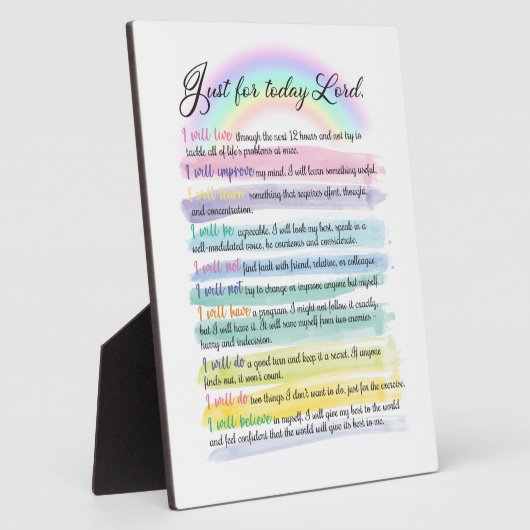 Just for today Lord,
I will live through the next 12 hours and not try to
tackle all of life's problems at once.
I will improve my mind. I will learn something useful.
I will learn something that requires effort, thought,
and concentration.
I will be agreeable. I will look my best, speak in a
well-modulated voice, be courteous and considerate.
I will not find fault with friend, relative, or colleague.
I will not try to change or improve anyone but myself.
I will have a program. I might not follow it exactly,
but I will have it. I will save myself from two enemies -
hurry and indecision.
I will do a good turn and keep it a secret. If anyone
finds out, it won't count.
I will do two things I don't want to do, just for the exercise.
I will believe in myself. I will give my best to the world
and feel confident that the world will give its best to me.